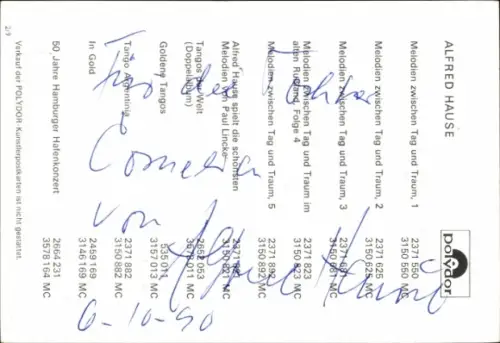 ALFRED HAUSE
polydor
Melodien zwischen Tag und Traum, 1 2371 550
3150 550 MC
Melodien zwischen Tag und Traum, 2 2371 625
3150 625 MC
Melodien zwischen Tag und Traum, 3
3150 681 MC
Melodien zwischen Tag und Traum im 2371 823
alten Rußland, Folge 4 3150 823 MC
Melodien zwischen Tag und Traum, 5 2371 892
3150 892 MC
Alfred Hause spielt die schönsten
Melodien von Paul Lincke 3150 821 MC
Tangos der Welt 2652 053
(Doppelalbum) MC
Goldene Tangos
3157 013 MC
Tango Argentina 2371 882
3150 882 MC
In Gold 2459 169
3146 169 MC
50 Jahre Hamburger Hafenkonzert 2664 231
3578 164 MC
Verkauf der POLYDOR-Künstlerpostkarten ist nicht gestattet.
2/9
Für die Tochter
Cornelia
von Alfred Hause
6-10-90